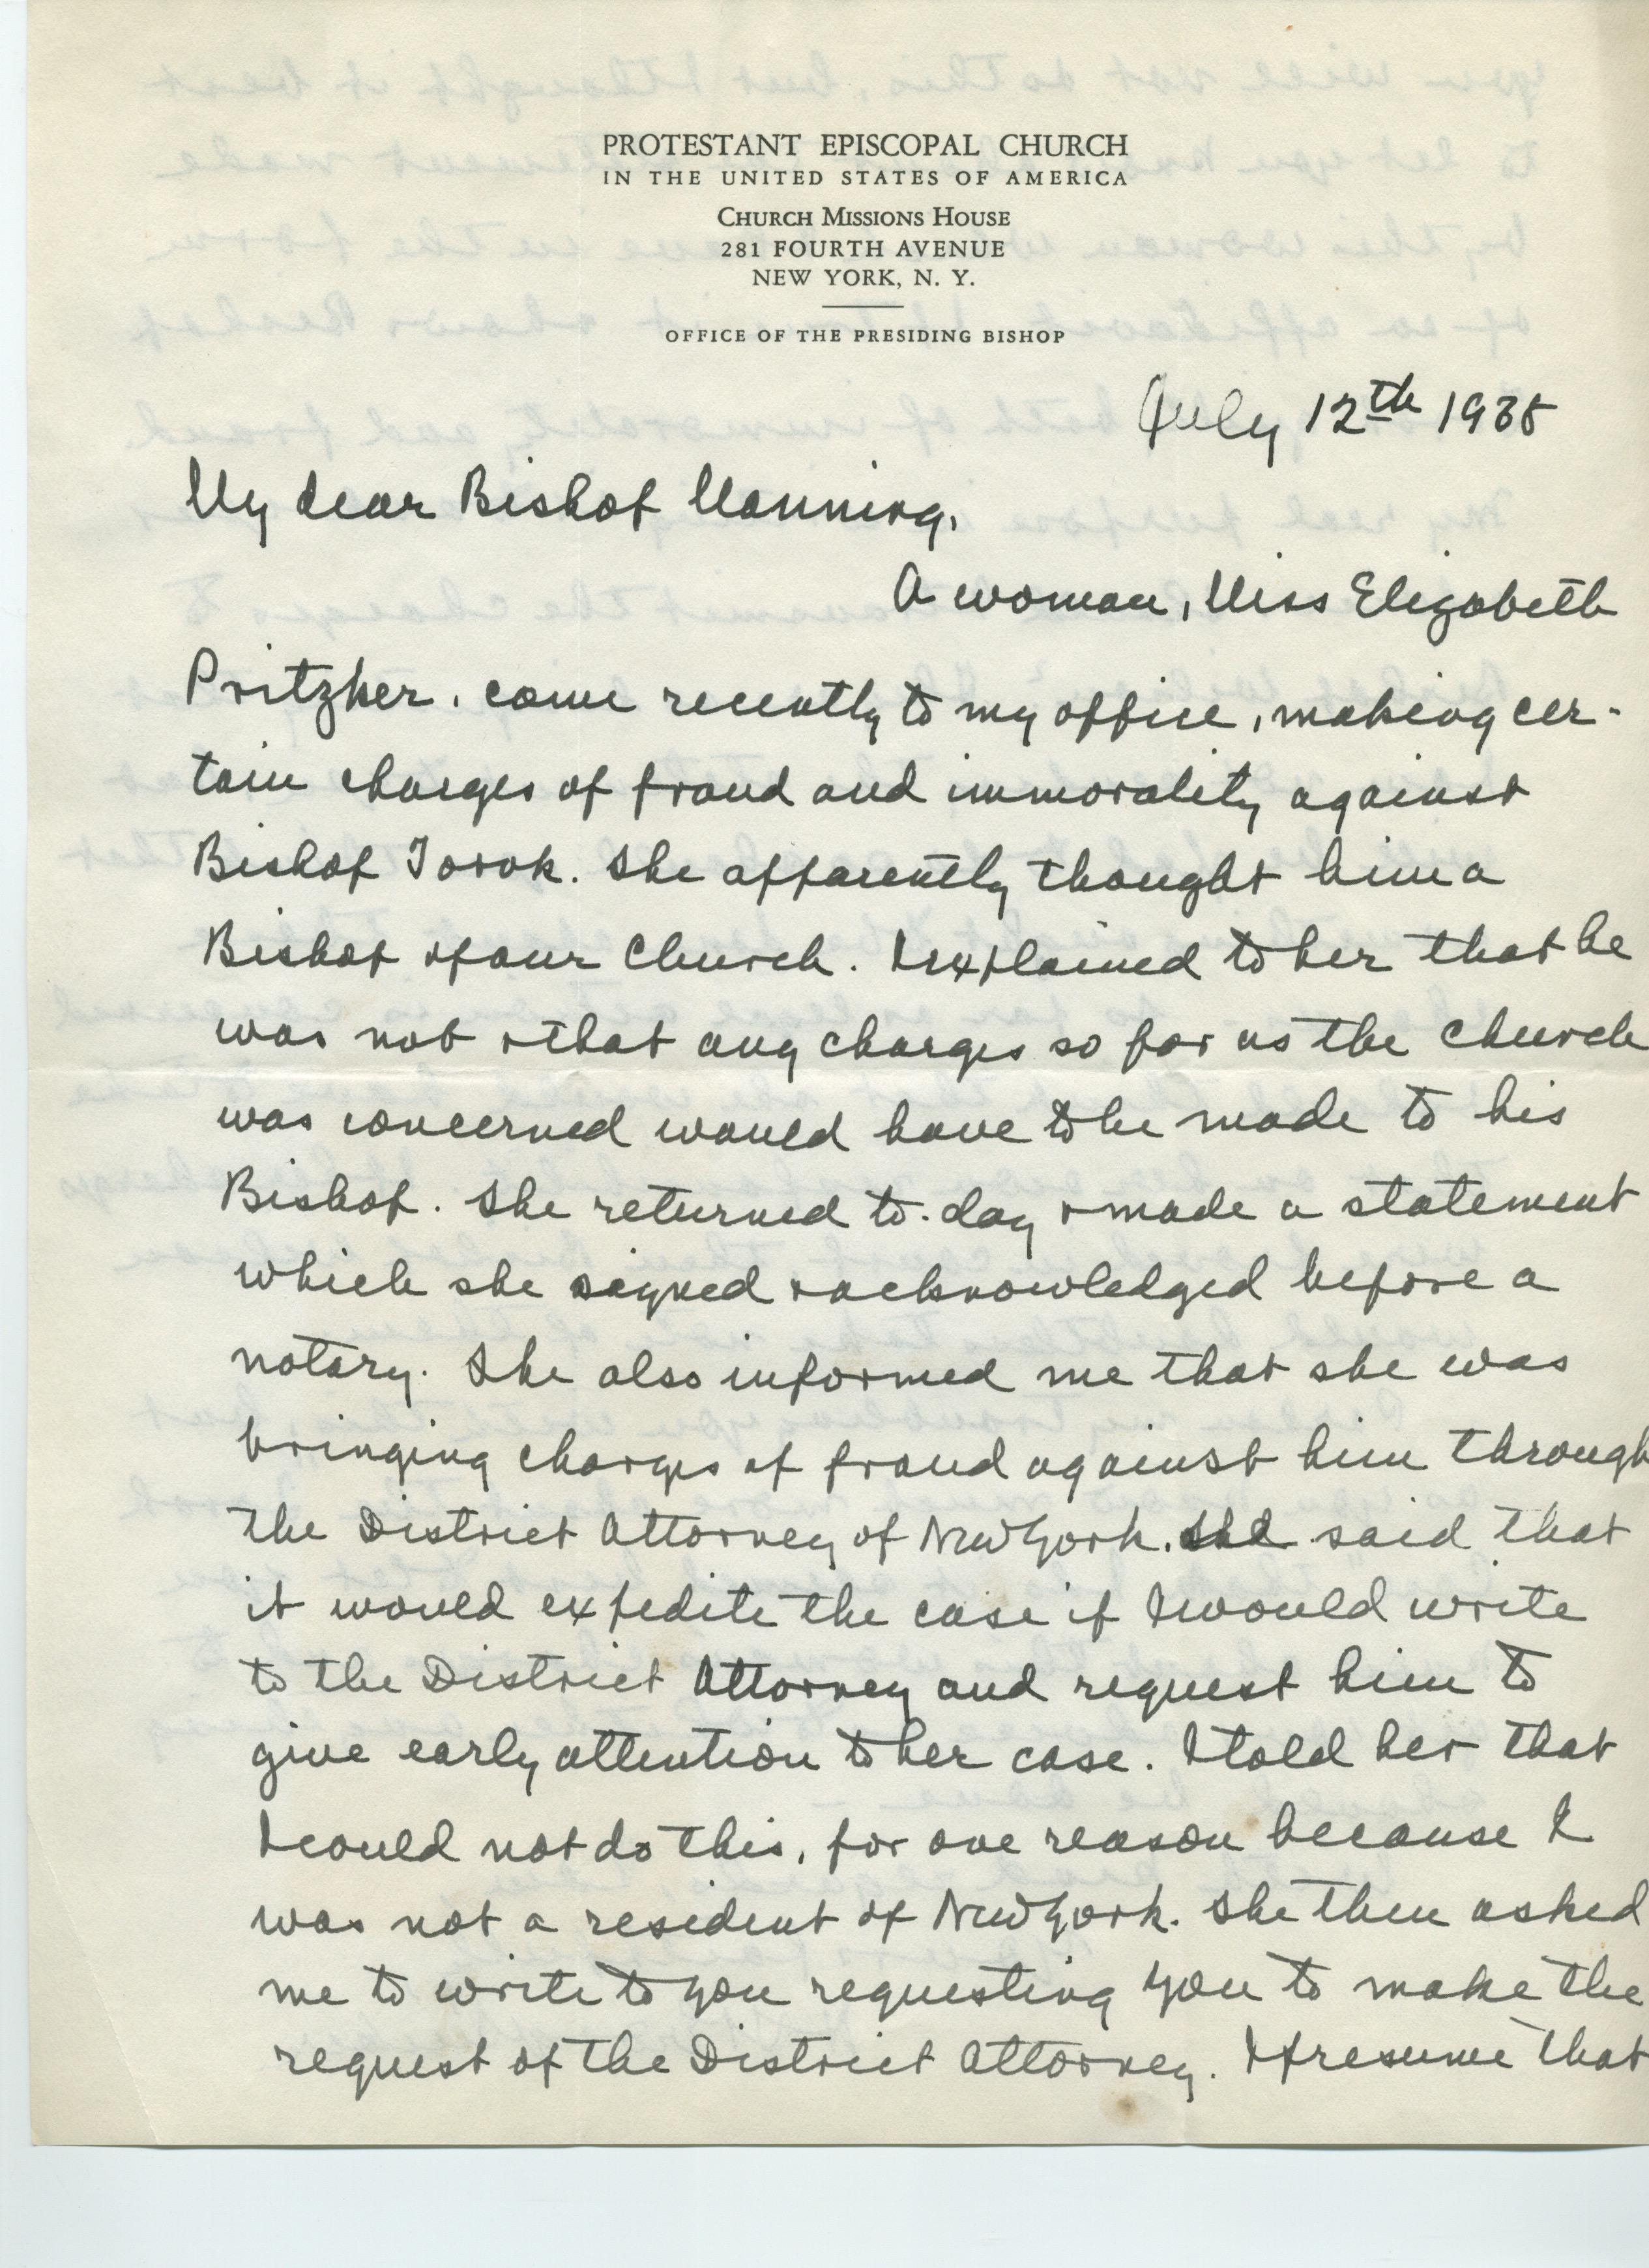 PROTESTANT EPISCOPAL CHURCH
IN THE UNITED STATES OF AMERICA
CHURCH MISSIONS HOUSE
281 FOURTH AVENUE
NEW YORK, N. Y.
OFFICE OF THE PRESIDING BISHOP
July 12th 1938
My dear Bishop Manning,
A woman, Miss Elizabeth
Pritzker, came recently to my office, making cer-
tain charges of fraud and immorality against
Bishop Torok. She apparently thought him a
Bishop of our Church. I explained to her that he
was not + that any charges so far as the Church
was concerned would have to be made to his
Bishop. She returned to-day + made a statement
which she signed + acknowledged before a
notary. She also informed me that she was
bringing charges of fraud against him through
the District Attorney of New York. She said that
it would expedite the case if I would write
to the District Attorney and request him to
give early attention to her case. I told her that
I could not do this, for one reason because I
was not a resident of New York. She then asked
me to write to you requesting you to make the
request of the District Attorney. I presume that